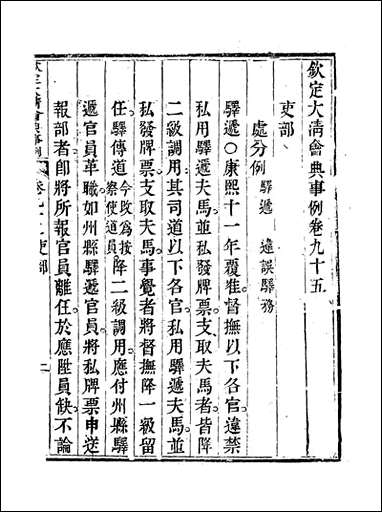 欽定大清會典事例卷九十五
吏部
處分例 驛遞 違誤驛務
驛遞○康熙十一年覆准督撫以下各官違禁
私用驛遞夫馬並私發牌票支取夫馬者皆降
二級調用其司道以下各官私用驛遞夫馬並
私發牌票支取夫馬事覺者將督撫降一級留
任驛傳道今改為按察使道員降二級調用應付州縣驛
遞官員革職如州縣驛遞官員將私牌票申送
報部者即將所報官員離任於應陞員缺不論